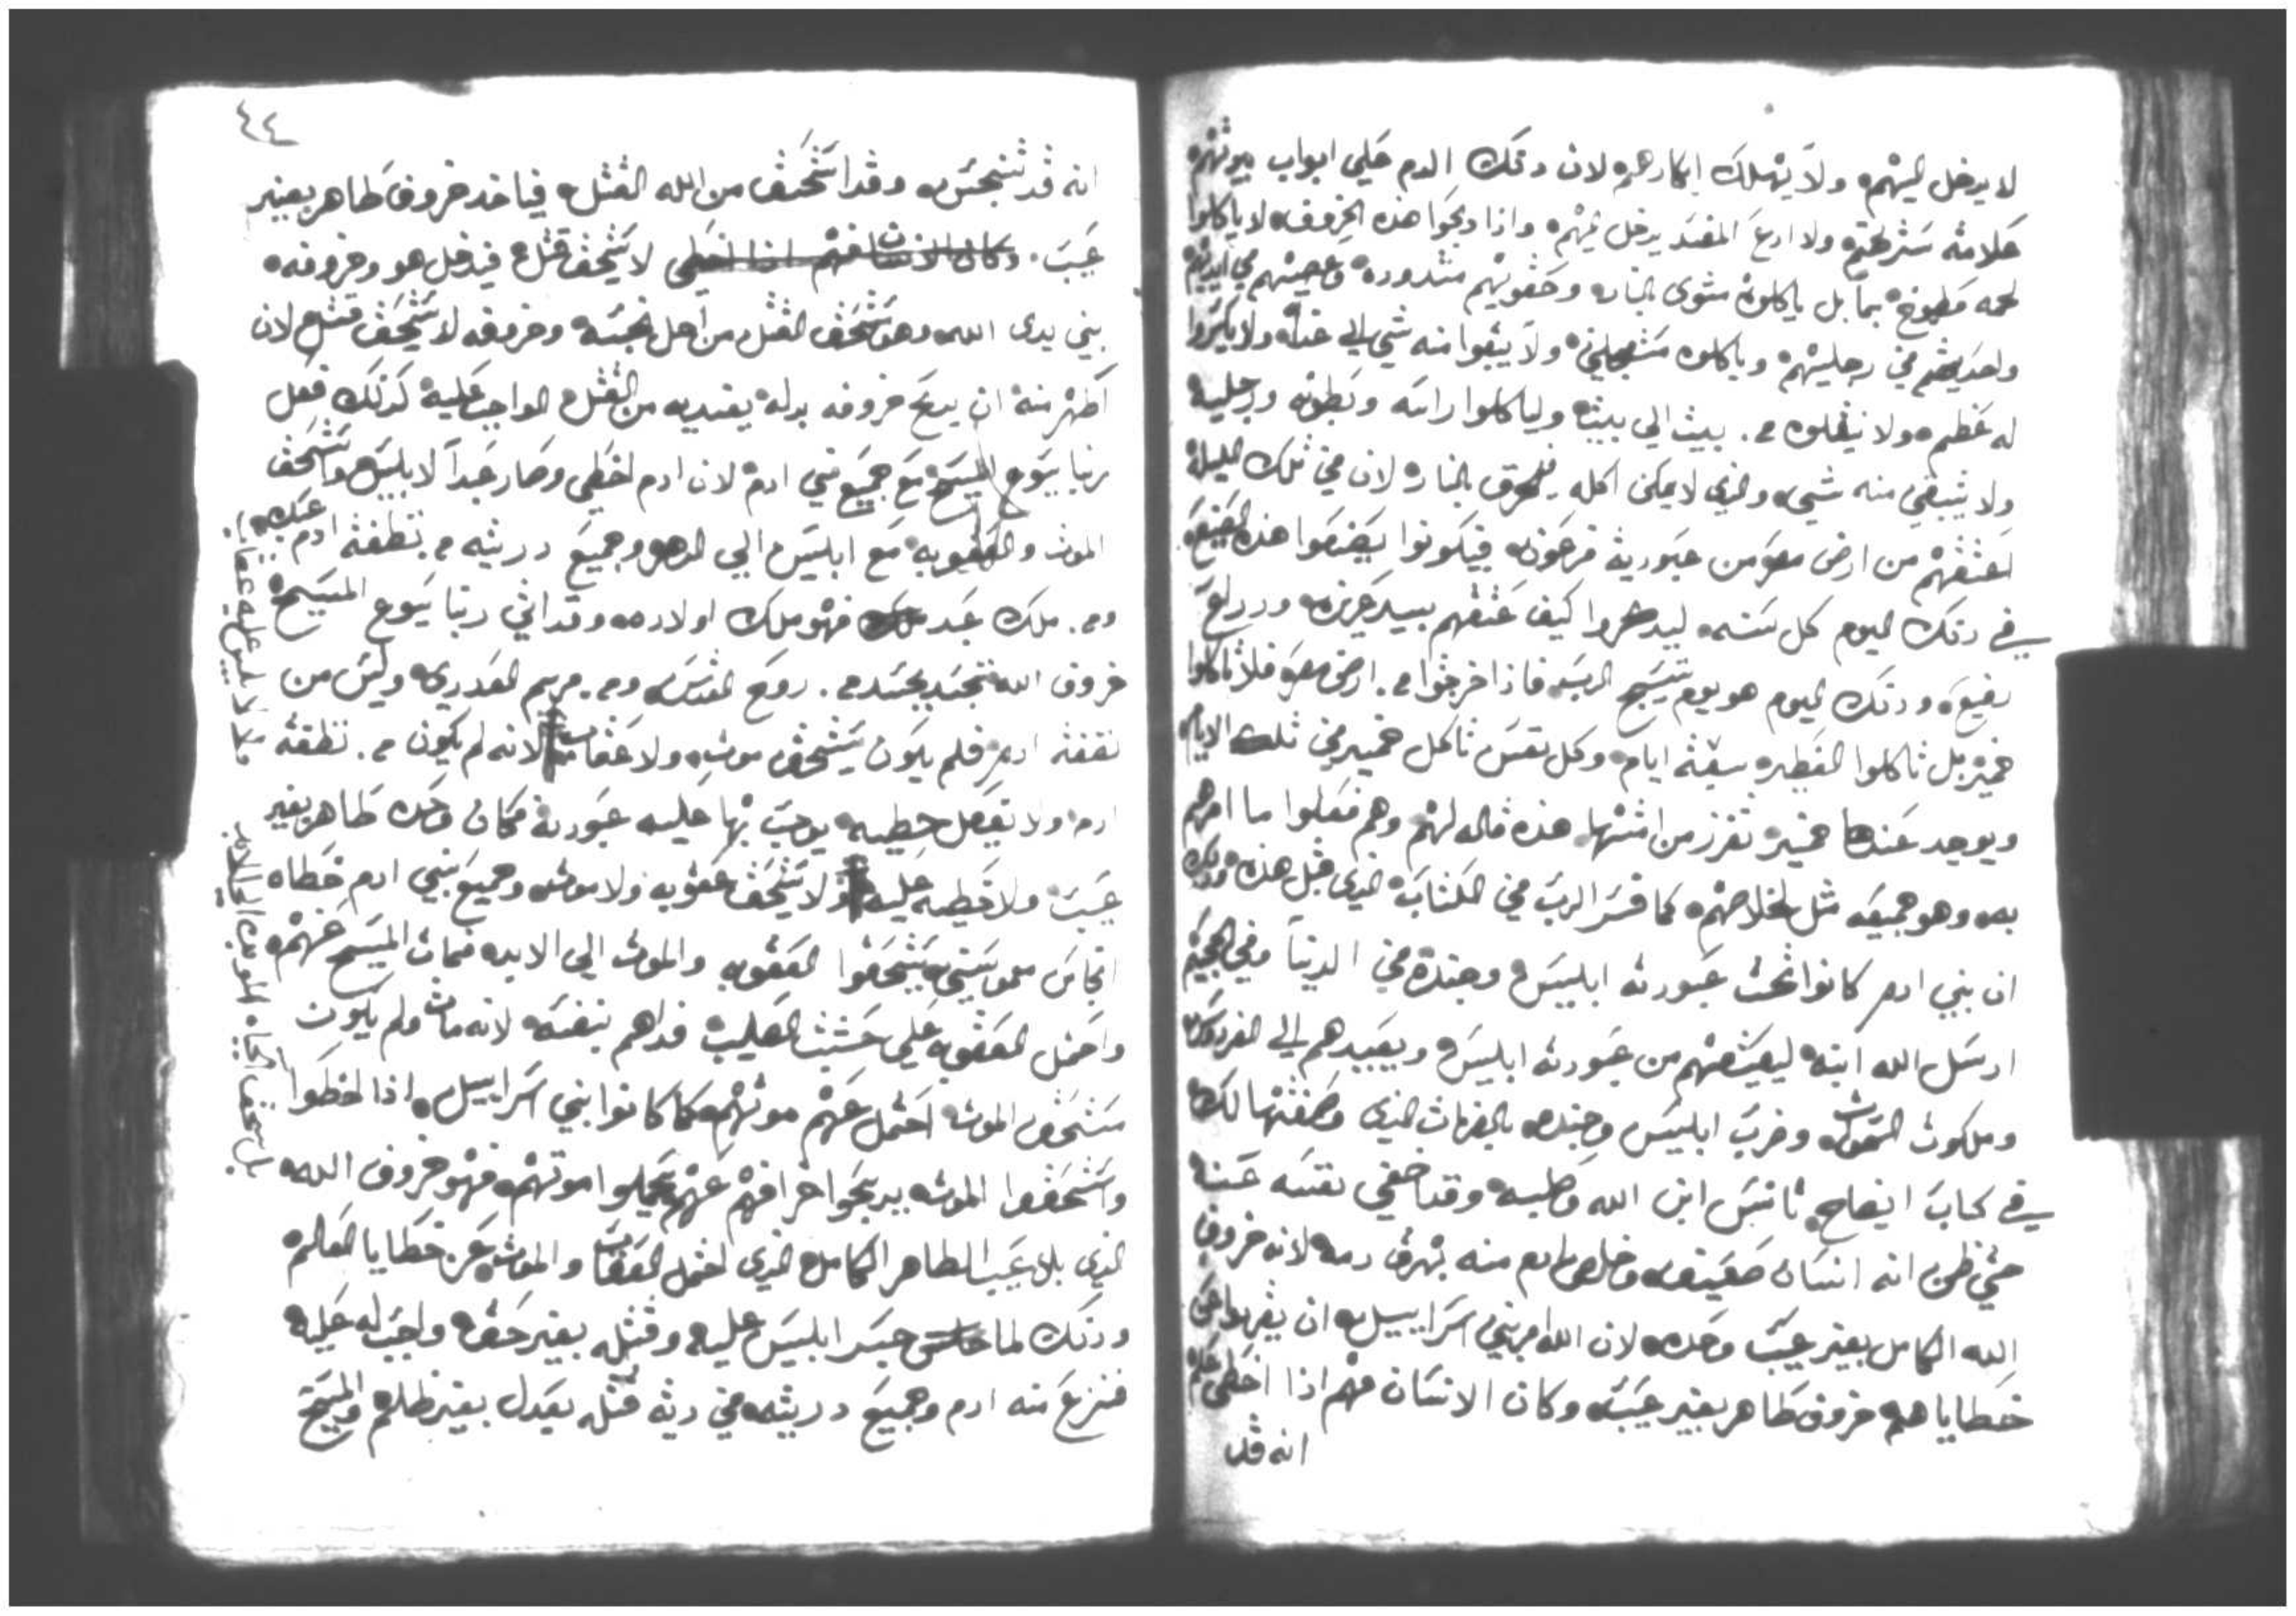 لا يدخل اليهم ولا يهلك ابكارهم لان دلك الدم علي ابواب بيوتهم
علامه ستر لهم ولا ادع المفسد يدخل اليهم وادا دبحوا هذه الخروف لا ياكلوا
لحمه مطبوخ بما بل ياكلوه مشوي بالنار وحقويهم مشدوده وعصيهم في ايديهم
في رجليهم وياكلوه مستعجلين ولا يبقوا منه شي الي غداه ولا يكسروا
له عظم ولا ينقلوه من بيت الي بيت ولياكلوا راسه وبطونه ورجليه
ولا يتبقي منه شي والدي لا يمكن اكله فليحرق بالنار لان في تلك الليلة
اعتقهم من ارض مصر من عبودية فرعون فيكونوا يصنعوا هذه الصنيع
في دلك اليوم كل سنه ليدكروا كيف عتقهم بيد عزيزه ودراع
رفيع ودلك اليوم هو يوم الرب فادا خرجوا من ارض مصر فلا تاكلوا
خمير بل تاكلوا الفطير سبعة ايام وكل نفس تاكل خمير في تلك الايام
ويوجد عندها خمير تفرز من امتها هذه قاله لهم وهم فعلوا ما امرهم
به وهو جميعه مثل لخلاصهم كما فسر الرب في الكتاب الذي قبل هذه ودلك
ان بني ادم كانوا تحت عبودية ابليس وجنده في الدنيا وفي الجحيم
ارسل الله ابنه ليعتقهم من عبودية ابليس ويعيدهم الي الفردوس
وملكوت السموات وضرب ابليس وجنده بالضربات الذي وصفتها لك
في كتاب ايضاح تانس ابن الله وصلبه وقد اخفي نفسه عنه
حتي ظن انه انسان ضعيف وخلص ادم منه بهرق دمه لانه خروف
الله الكامل بغير عيب وحده لان الله امر بني اسراييل ان يقربوا عن
خطاياهم خروف طاهر بغير عيب وكان الانسان منهم ادا اخطي علم
انه قد
٤٤
انه قد تنجس وقد استحق من الله القتل فياخد خروف طاهر بغير
عيب وكان الانسان منهم اذا اخطي لا يستحق قتل فيدخل هو وخروفه
بين يدي الله وهو مستحق القتل من اجل نجسه وخروفه لا يستحق قتل لان
اطهر منه ان يدبح خروفه بداله يفديه من القتل الواجب عليه كدلك فعل
ربنا يسوع المسيح مع جميع بني ادم لان ادم اخطي وصار عبدا لابليس واستحق
الموت والعقوبه مع ابليس الي الدهر وجميع دريته من نطفة ادم
ومن ملك عبد فهو ملك اولاده وقد اتي ربنا يسوع المسيح
خروف الله تجسد بجسد من روح القدس ومن مريم العدري وليس من
نطفة ادم فلم يكون يستحق موت ولا عقاب لانه لم يكون من نطفة
ادم ولا يفعل خطيه يوجب بها عليه عبودية فكان وحده طاهر بغير
عيب ولا خطيه عليه ولا يستحق عقوبه ولا موت وجميع بني ادم خطاه
انجاس مستحقوا العقوبه والموت الي الابد فمات المسيح عنهم
واحتمل العقوبه علي خشبت الصليب فداهم بنفسه لانه مات ولم يكون
مستحق الموت احتمل عنهم موتهم كما كانوا بني اسراييل ادا اخطوا
واستحقوا الموت يدبحوا خرافهم عنهم يحملوا موتهم فهو خروف الله
الذي بلا عيب الطاهر الكامل الذي احتمل العقاب والموت عن خطايا العالم
ودلك لما جسر ابليس عليه وقتله بغير حق واجب له عليه
فنزع منه ادم وجميع دريته في دية قتله بعدل بغير ظلم والمسيح